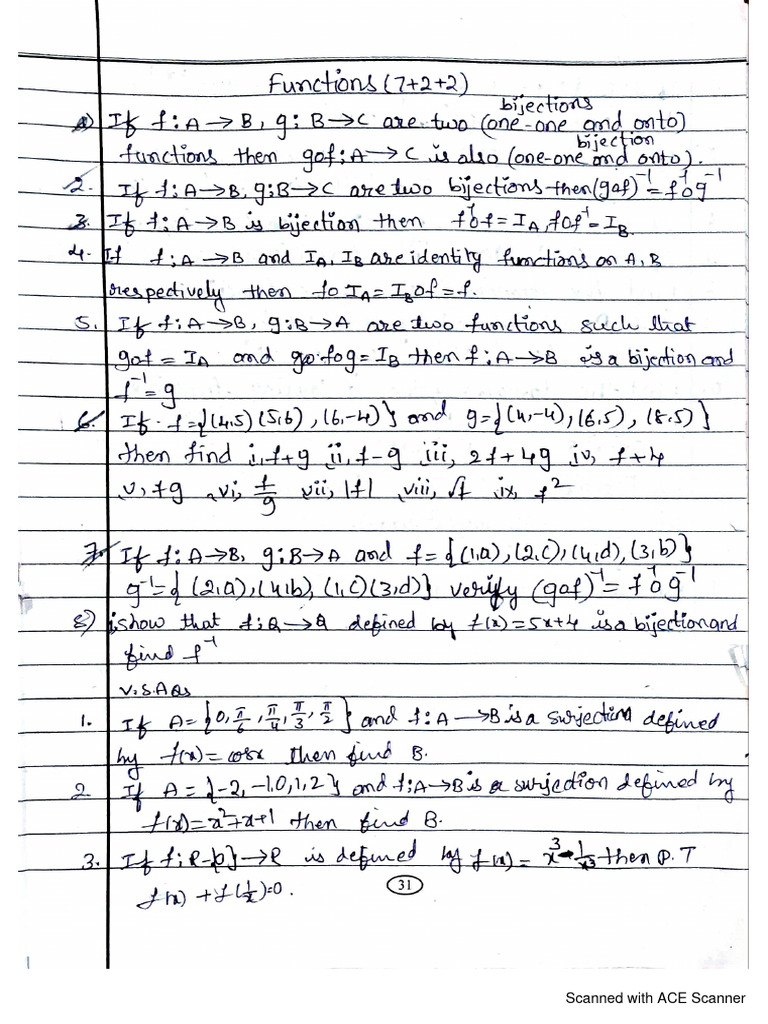 Functions (7+2+2)
bijections
1) If f:A→B, g:B→C are two (one-one and onto)
bijection
functions then gof:A→C is also (one-one and onto).
2. If f:A→B, g:B→C are two bijections then (gof)⁻¹=f⁻¹og⁻¹
3. If f:A→B is bijection then f⁻¹of=I_A, fof⁻¹=I_B.
4. If f:A→B and I_A, I_B are identity functions on A, B
respectively then foI_A=I_Bof=f.
5. If f:A→B, g:B→A are two functions such that
gof=I_A and fog=I_B then f:A→B is a bijection and
f⁻¹=g
6. If f={(4,5) (5,6), (6,-4)} and g={(4,-4), (6,5), (8,5)}
then find i, f+g ii, f-g iii, 2f+4g iv, f+4
v, fg vi, f/g vii, |f| viii, √f ix, f²
7. If f:A→B, g:B→A and f={(1,a), (2,c), (4,d), (3,b)}
g⁻¹={(2,a), (4,b), (1,c) (3,d)} verify (gof)⁻¹=f⁻¹og⁻¹
8) i, show that f:Q→Q defined by f(x)=5x+4 is a bijection and
find f⁻¹
V.S.AQs
1. If A={0, π/6, π/4, π/3, π/2} and f:A→B is a surjection defined
by f(x)=cosx then find B.
2. If A={-2,-1,0,1,2} and f:A→B is a surjection defined by
f(x)=x²+x+1 then find B.
3. If f:R-{0}→R is defined by f(x)=x³-1/x³ then P.T
f(x)+f(1/x)=0.
31
Scanned with ACE Scanner